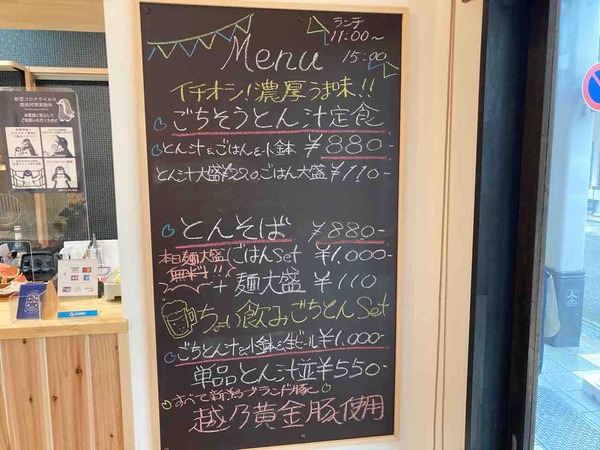 Menu
ランチ
11:00~
15:00
イチオシ!濃厚うま味!!
ごちそうとん汁定食
とん汁&ごはん&小鉢 ¥880-
とん汁大盛¥220 ごはん大盛 ¥110-
とんそば ¥880-
本日麺大盛
無料!!
ごはんSet ¥1,000-
+麺大盛 ¥110
ちょい飲みごちとんSet
ごちとん汁&小鉢&生ビール¥1,000-
単品とん汁並¥550-
すべて新潟ブランド豚
越乃黄金豚使用
新型コロナウイルス
感染対策実施中